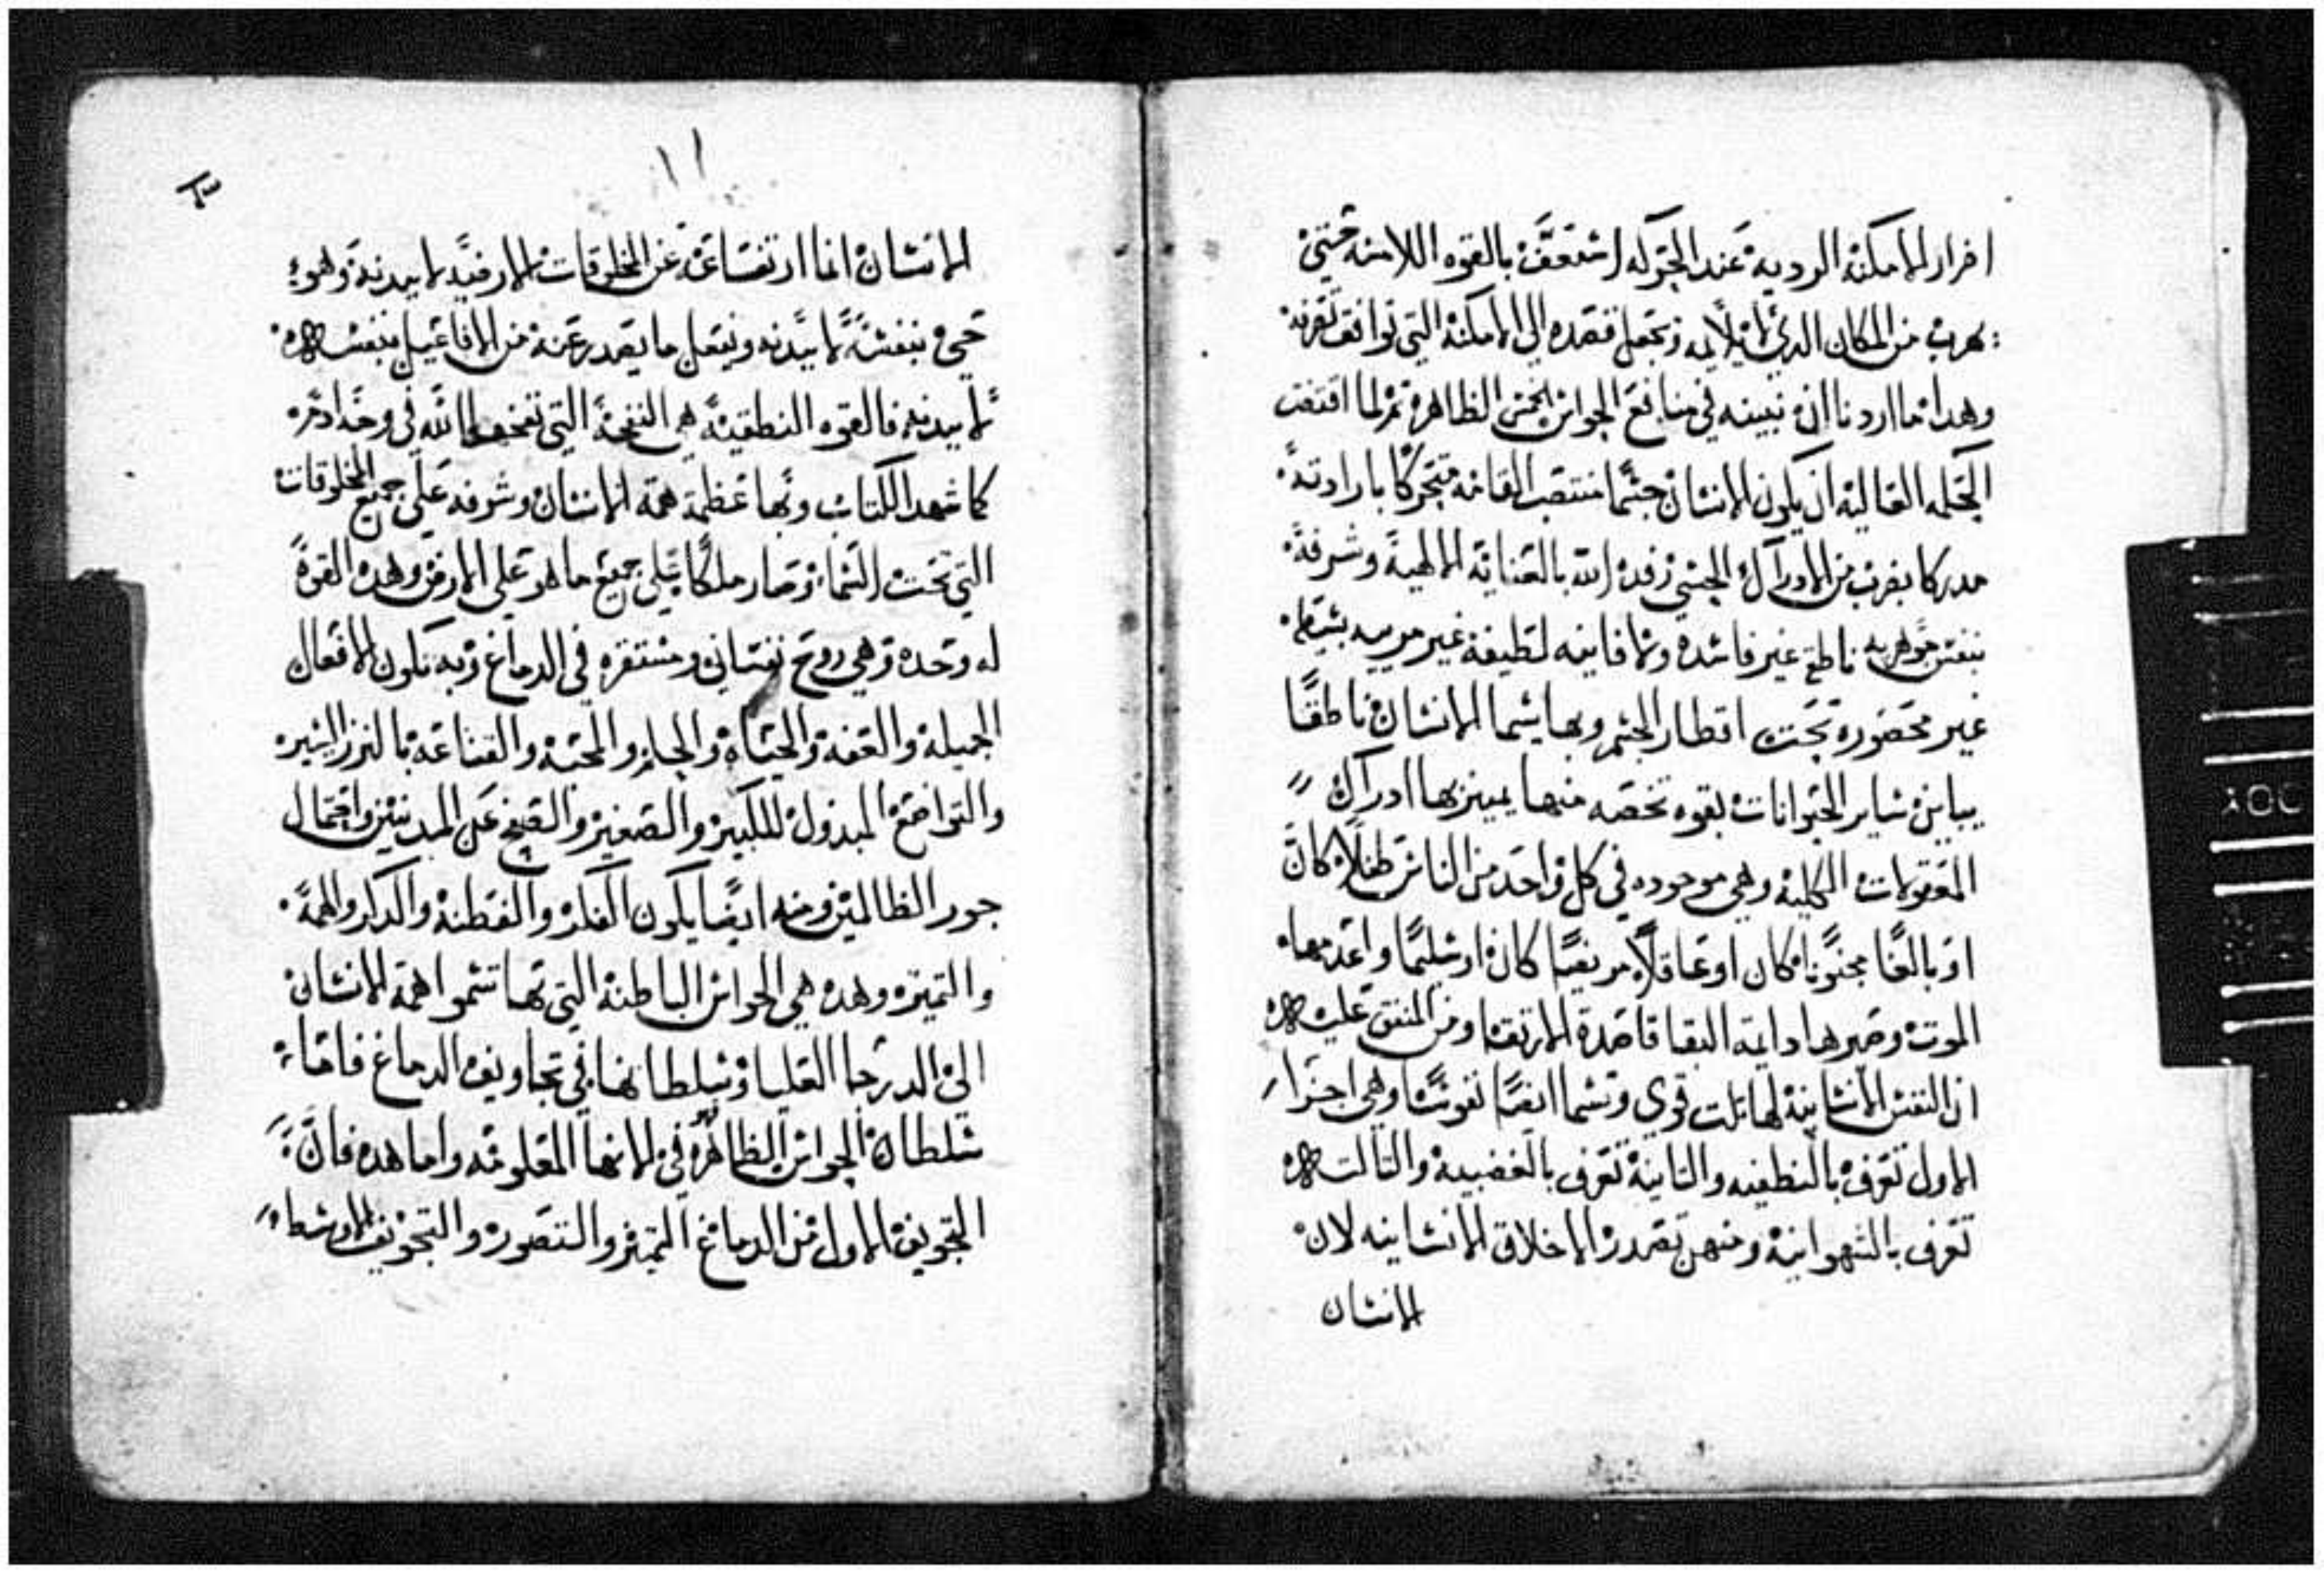 افرار الامكنه الرديه عند الحركه اسعفه بالقوه اللامسه حتي
يهرب من المكان الدي لا يلايمه ويجعل قصده الي الامكنه التي توافق
وهدا ما اردنا ان نبينه في منافع الحواس الخمس الظاهره ثم لما اقتضت
الحكمه العاليه ان يكون الانسان جسمًا منتصب القامه متحركًا بارادته
مدركا بضرب من الادراك الحسي زفده الله بالعنايه الالهية وشرفه
بنفس جوهريه ناطقه غير فاسده ولا فانيه لطيفة غير مرييه بسيطه
غير محصوره تحت اقطار الجسم وبها يسما الانسان ناطقًا
يباين ساير الحيوانات بقوه تخصه منها يميز بها ادراك
المعقولات الكليه وهي موجوده في كل واحد من الناس طفلًا كان
او بالغًا مجنونًا كان او عاقلًا مريضًا كان او سليمًا واعدمها
الموت وصيرها دايمة البقا قاصدة الارتقا ومن المتفق عليه
ان النفس الانسانية لها تلت قوي وتسما ايضًا نفوسًا وهي اجزا
الاول تعرف بالنطقيه والتانية تعرف بالغضبية والتالت
تعرف بالشهوانية ومنهن تصدر الاخلاق الانسانيه لان
الانسان
١١
الانسان انما ارتفاعه عن المخلوقات الارضيه لا ببدنه وهو
حي بنفسه لا ببدنه ويفعل ما يصدر عنه من الافاعيل بنفسه
لا ببدنه فالقوه النطقية هي النفخة التي نفخها الله في وجه ادم
كما شهد الكتاب وبها عظمة همة الانسان وشرفه علي جميع المخلوقات
التي تحت السماء وصار ملكًا علي جميع ما هو علي الارض وهده القوة
له وحده وهي روح نفساني ومستقره في الدماغ وبه تكون الافعال
الجميلة والعفه والحياه والحلم والمحبه والقناعه بالنزر اليسير
والتواضع المبدول للكبير والصغير والصفح عن المدنبين واحتمال
جور الظالمين ومنه ايضًا يكون الفكر والفطنه والدكر والهمة
والتميز وهده هي الحواس الباطنة التي بها تسموا همة الانسان
الي الدرجا العليا وسلطانها في تجاويف الدماغ فاما
سلطان الحواس الظاهره في الاتها المعلومه واما هده فان
التجويف الاول من الدماغ التميز والتصور والتجويف الاوسط